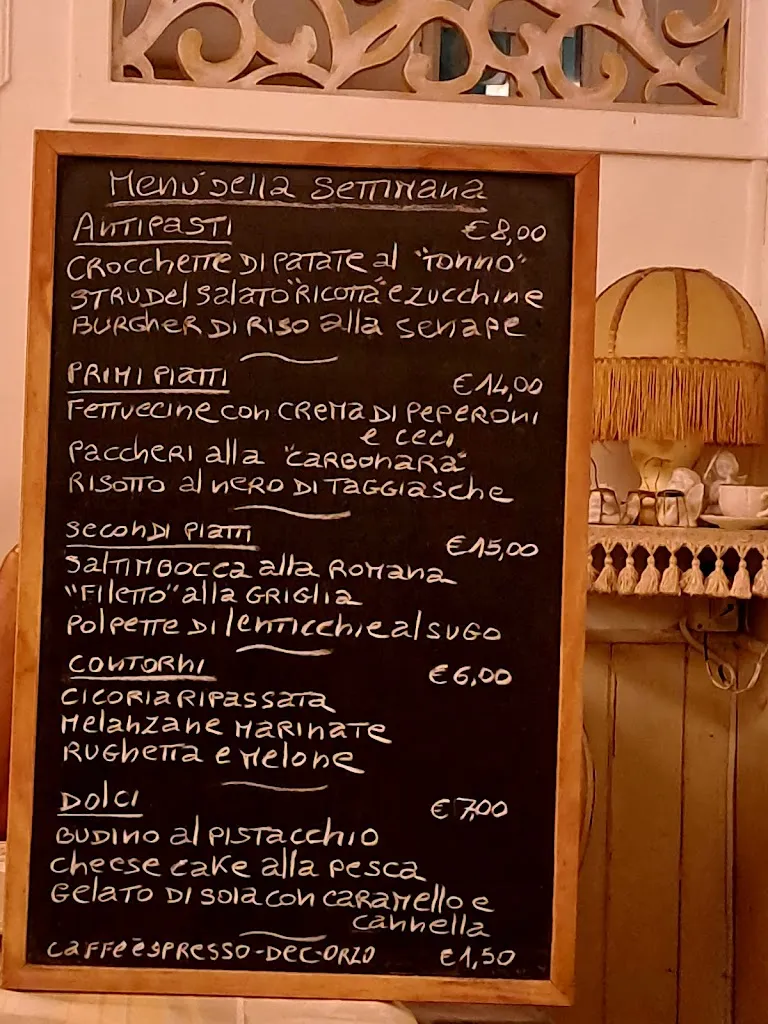 Menù della settimana
Antipasti €8,00
Crocchette di patate al "tonno"
Strudel salato "ricotta" e zucchine
Burgher di riso alla senape
Primi piatti €14,00
Fettuccine con crema di peperoni
e ceci
Paccheri alla "carbonara"
Risotto al nero di taggiasche
Secondi piatti €15,00
Saltimbocca alla romana
"Filetto" alla griglia
Polpette di lenticchie al sugo
Contorni €6,00
Cicoria ripassata
Melanzane marinate
Rughetta e melone
Dolci €7,00
Budino al pistacchio
Cheese cake alla pesca
Gelato di soia con caramello e
cannella
Caffè espresso-dec-orzo €1,50